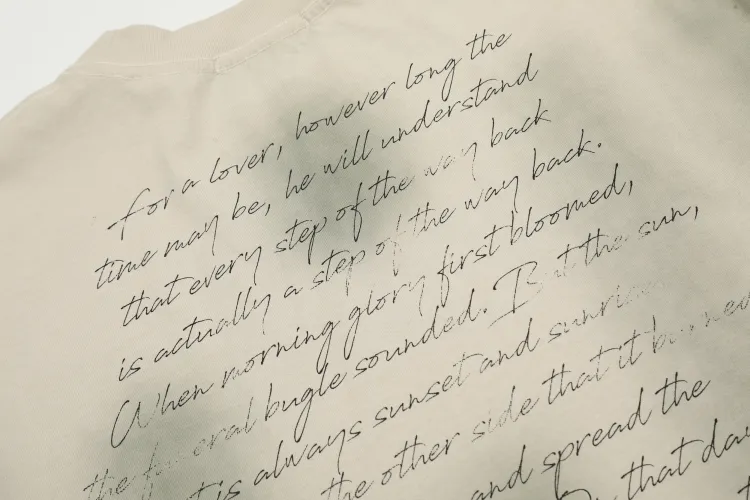 for a lover, however long the
time may be, he will understand
that every step of the way back
is actually a step of the way back.
When morning glory first bloomed,
the funeral bugle sounded. But the sun,
it is always sunset and sunrise
the other side that it burned
and spread the
that day